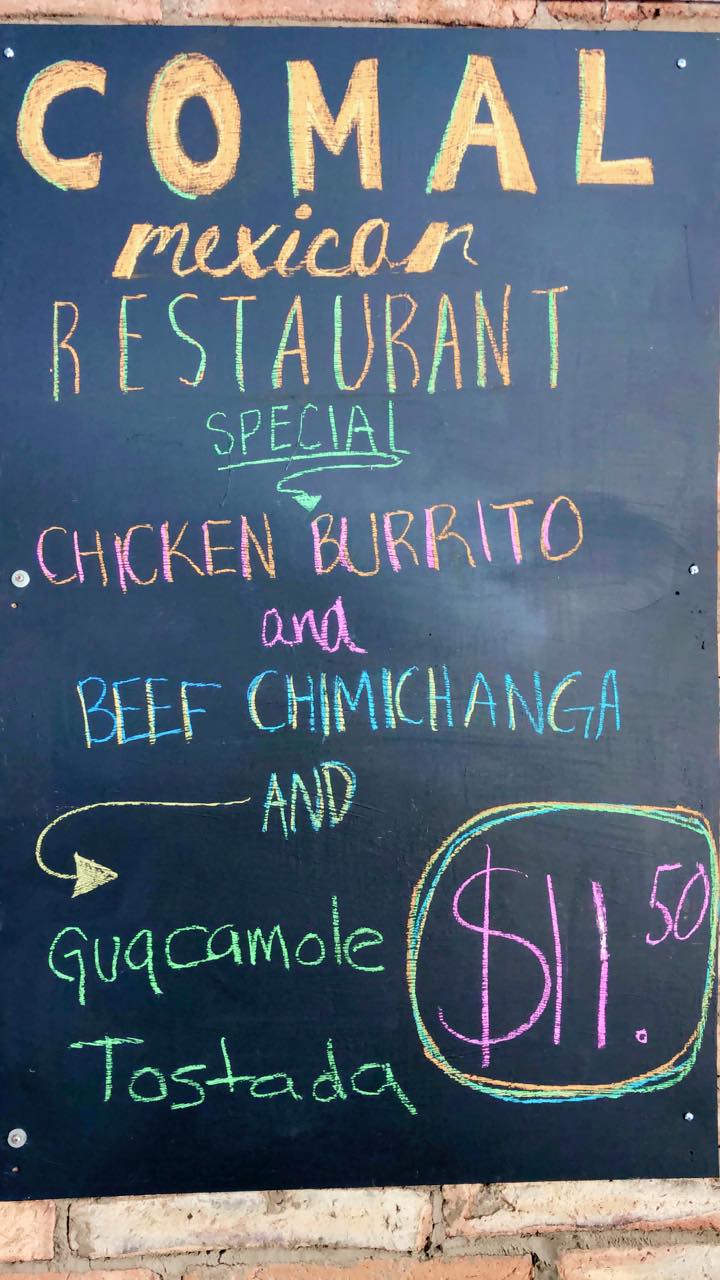 COMAL
mexican
RESTAURANT
SPECIAL
CHICKEN BURRITO
and
BEEF CHIMICHANGA
AND
Guacamole
Tostada
$11.50